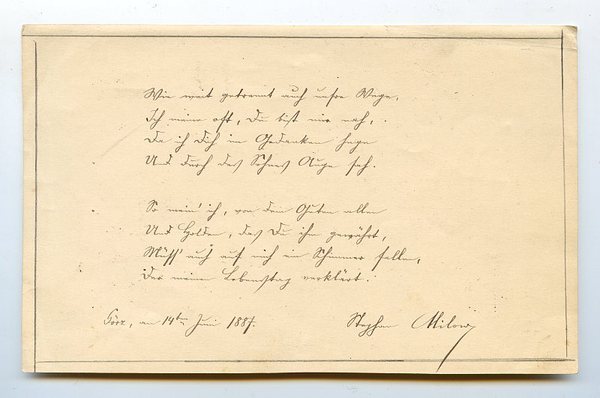 Wie weit getrennt auch unsre Wege,
Ich mein' oft, Du bist mir nah,
Da ich Dich in Gedanken hege
Und durch des Sohnes Auge sah.
So mein' ich, von dem Guten allen
Und Holden, das Du ihm gewährt,
Müss' auch auf mich ein Schimmer fallen,
Der meinen Lebenstag verklärt.
Görz, am 14ten Juni 1887. Stephan Milow